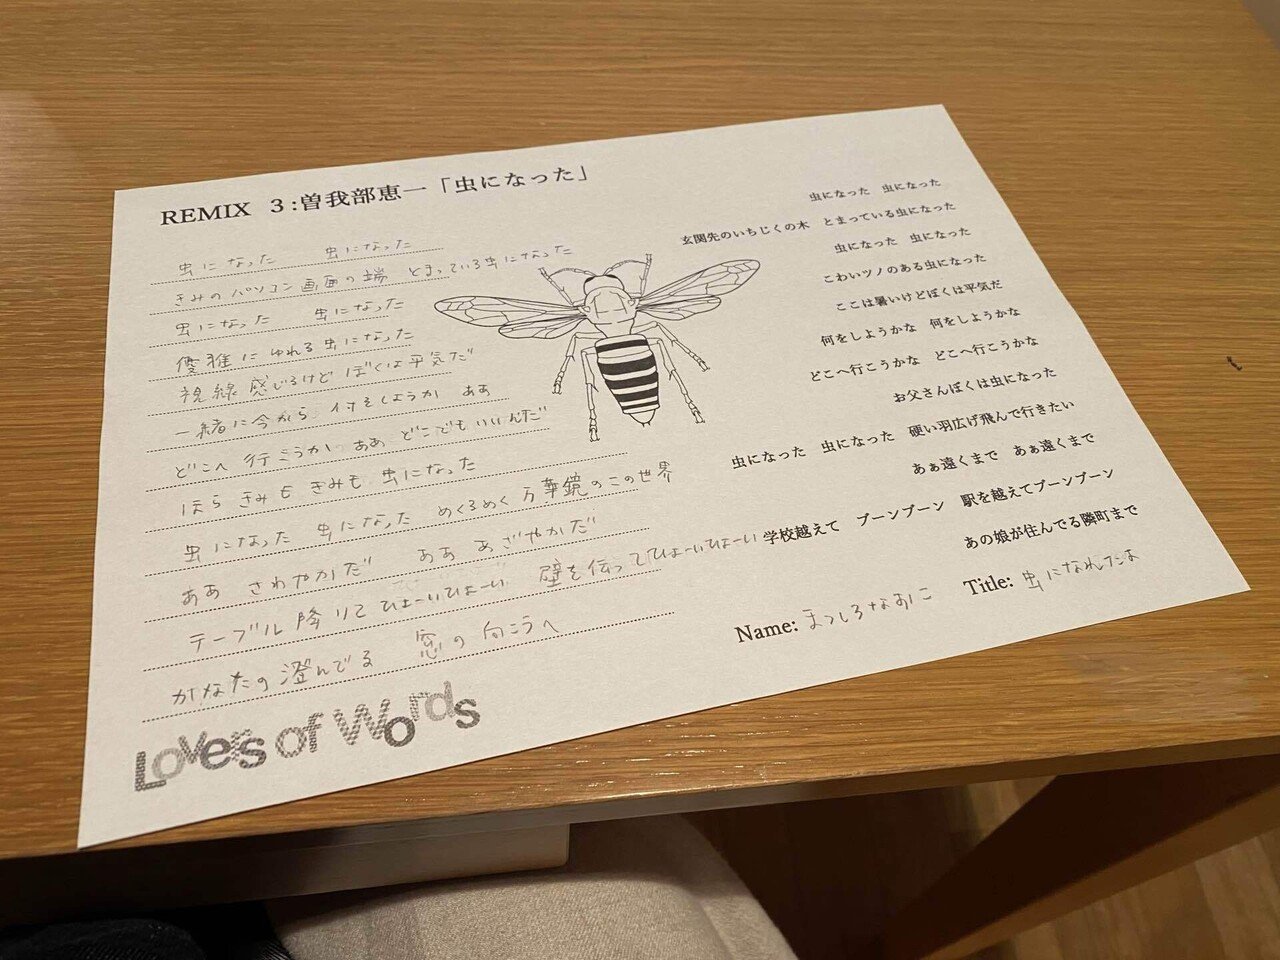 REMIX 3:曽我部恵一「虫になった」
虫になった 虫になった
きみのパソコン画面の端 とまっている虫になった
虫になった 虫になった
優雅にゆれる虫になった
視線感じるけど ぼくは平気だ
一緒に今から 何をしようか ああ
どこへ行こうか ああ どこでもいいんだ
ほら きみも きみも 虫になった
虫になった 虫になった めくるめく万華鏡のこの世界
ああ さわやかだ ああ あざやかだ
テーブル降りて ひょーいひょーい 壁を伝って ひょーいひょーい
かなたの澄んでる 窓の向こうへ
Lovers of Words
虫になった 虫になった
玄関先のいちじくの木 とまっている虫になった
虫になった 虫になった
こわいツノのある虫になった
ここは暑いけどぼくは平気だ
何をしようかな 何をしようかな
どこへ行こうかな どこへ行こうかな
お父さんぼくは虫になった
虫になった 虫になった 硬い羽広げ飛んで行きたい
あぁ遠くまで あぁ遠くまで
学校越えて ブーンブーン 駅を越えてブーンブーン
あの娘が住んでる隣町まで
Name: まっしろなおに
Title: 虫になれたよ